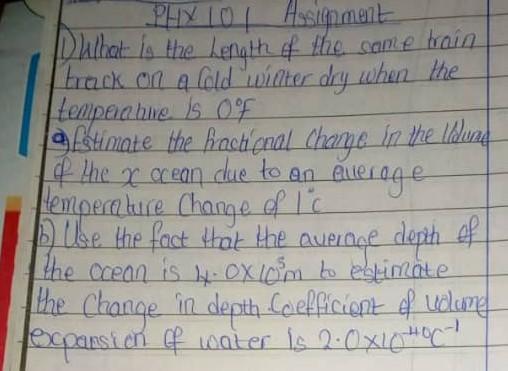 PHX 101 Assignment
1) What is the length of the same train
track on a Cold winter dry when the
temperature is 0°F
a) Estimate the fractional change in the Volume
of the x ocean due to an average
temperature Change of 1°c
b) Use the fact that the average depth of
the ocean is 4.0x10³m to estimate
the Change in depth Coefficient of volume
expansion of water is 2.0x10⁻⁴⁰C⁻¹